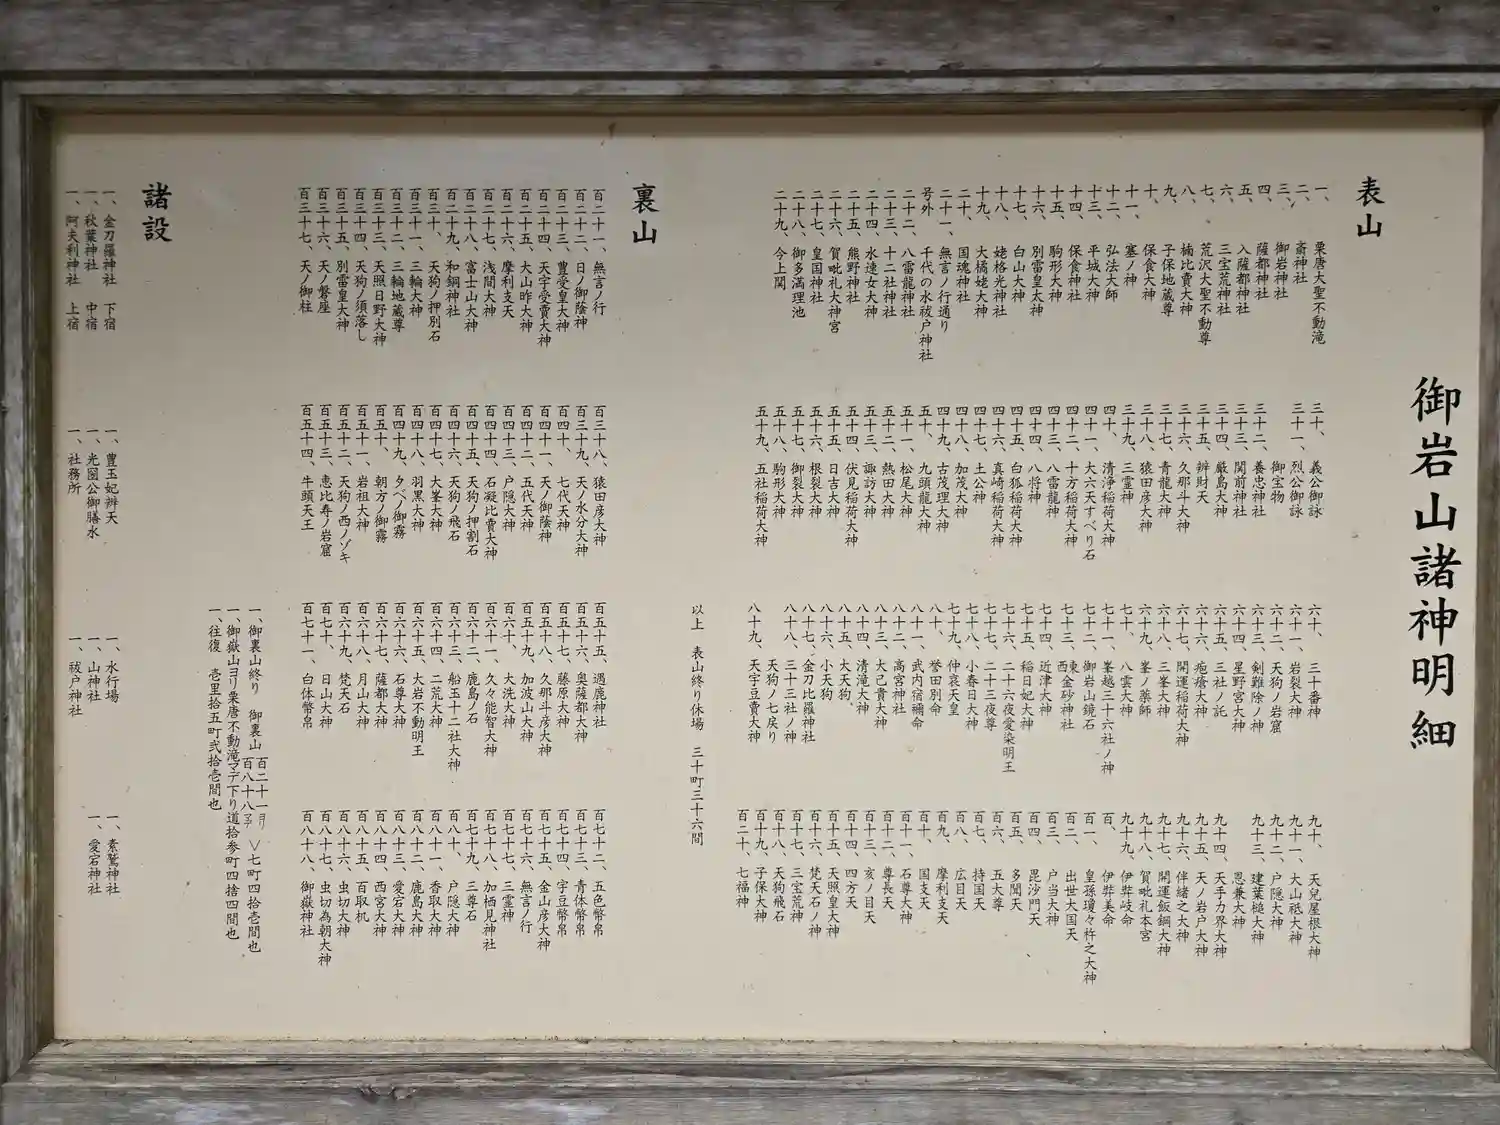 御岩山諸神明細
表山
一、栗唐大聖不動滝
二、斎神社
三、御岩神社
四、薩都神社
五、入薩都神社
六、三宝荒神社
七、荒沢大聖不動尊
八、楠比賣大神
九、子保地蔵尊
十、保食大神
十一、塞ノ神
十二、弘法大師
十三、平城大神
十四、保食神社
十五、駒形大神
十六、別雷皇太神
十七、白山大神
十八、姥格光神社
十九、大橘姥大神
二十、国魂神社
二十一、無言ノ行通り
号外 千代の水祓戸神社
二十二、八雷龍神社
二十三、十二社神社
二十四、水速女大神
二十五、熊野神社
二十六、賀毗礼大神宮
二十七、皇国神社
二十八、御多満理池
二十九、今上関
三十、義公御詠
三十一、烈公御詠
御宝物
三十二、養忠神社
三十三、関前神社
三十四、厳島大神
三十五、辨財天
三十六、久那斗大神
三十七、青龍大神
三十八、猿田彦大神
三十九、三霊神
四十、清浄稲荷大神
四十一、大六天すべり石
四十二、十方稲荷大神
四十三、八雷龍神
四十四、八将神
四十五、白狐稲荷大神
四十六、真崎稲荷大神
四十七、土公神
四十八、加茂大神
四十九、古茂理大神
五十、九頭龍大神
五十一、松尾大神
五十二、熱田大神
五十三、諏訪大神
五十四、伏見稲荷大神
五十五、日吉大神
五十六、根裂大神
五十七、御裂大神
五十八、駒形大神
五十九、五社稲荷大神
六十、三十番神
六十一、岩裂大神
六十二、天狗ノ岩窟
六十三、剣難除ノ神
六十四、星野宮大神
六十五、三社ノ託
六十六、疱瘡大神
六十七、開運稲荷大神
六十八、三峯大神
六十九、峯ノ薬師
七十、八雲大神
七十一、峯越三十六社ノ神
七十二、御岩山鏡石
七十三、東金砂神社
西金砂神社
七十四、近津大神
七十五、稲日妃大神
七十六、二十六夜愛染明王
七十七、二十三夜尊
七十八、小春日大神
七十九、仲哀天皇
八十、誉田別命
八十一、武内宿禰命
八十二、高宮神社
八十三、大己貴大神
八十四、清滝大神
八十五、大天狗、
八十六、小天狗
八十七、金刀比羅神社
八十八、三十三社ノ神
天狗ノ七戻り
八十九、天宇豆賣大神
九十、天兒屋根大神
九十一、大山祗大神
九十二、戸隠大神
九十三、建葉槌大神
思兼大神
九十四、天手力界大神
九十五、天ノ岩戸大神
九十六、伴緒之大神
九十七、開運飯綱大神
九十八、賀毗礼本宮
九十九、伊弉岐命
百、伊弉美命
百一、皇孫瓊々杵之大神
百二、出世大国天
百三、戸当大神
百四、毘沙門天
百五、多聞天
百六、五大尊
百七、持国天
百八、広目天
百九、摩利支天
百十、国支天
百十一、石尊大神
百十二、尊長天
百十三、亥ノ目天
百十四、四方天
百十五、天照皇大神
百十六、梵天石ノ神
百十七、三宝荒神
百十八、天狗飛石
百十九、子保大神
百二十、七福神
以上 表山終り休場 三十町三十六間
裏山
百二十一、無言ノ行
百二十二、日ノ御蔭神
百二十三、豊受皇大神
百二十四、天宇受賣大神
百二十五、大山昨大神
百二十六、摩利支天
百二十七、浅間大神
百二十八、富士山大神
百二十九、和鋼神社
百三十、天狗ノ押別石
百三十一、三輪大神
百三十二、三輪地蔵尊
百三十三、天照日野大神
百三十四、天狗ノ須落し
百三十五、別雷皇大神
百三十六、天ノ磐座
百三十七、天ノ御柱
百三十八、猿田彦大神
百三十九、天ノ水分大神
百四十、七代天神
百四十一、天ノ御蔭神
百四十二、五代天神
百四十三、戸隠大神
百四十四、石凝比賣大神
百四十五、天狗ノ押割石
百四十六、天狗ノ飛石
百四十七、大峯大神
百四十八、羽黒大神
百四十九、夕べノ御霧
百五十、朝方ノ御霧
百五十一、岩祖大神
百五十二、天狗ノ西ノゾキ
百五十三、恵比寿ノ岩窟
百五十四、牛頭天王
百五十五、遇鹿神社
百五十六、奥薩都大神
百五十七、藤原大神
百五十八、久那斗彦大神
百五十九、加波山大神
百六十、大洗大神
百六十一、久々能智大神
百六十二、鹿島ノ石
百六十三、船玉十二社大神
百六十四、二荒大神
百六十五、大岩不動明王
百六十六、石尊大神
百六十七、薩都大神
百六十八、月山大神
百六十九、梵天石
百七十、日山大神
百七十一、白体幣帛
百七十二、五色幣帛
百七十三、青体幣帛
百七十四、宇豆幣帛
百七十五、金山彦大神
百七十六、無言ノ行
百七十七、三霊神
百七十八、加栖見神社
百七十九、三尊石
百八十、戸隠大神
百八十一、香取大神
百八十二、鹿島大神
百八十三、愛宕大神
百八十四、西宮大神
百八十五、百取机
百八十六、虫切大神
百八十七、虫切為朝大神
百八十八、御嶽神社
一、御裏山終り 御裏山 百二十一ヨリ 百八十八マデ ∨七町四拾壱間也
一、御嶽山ヨリ栗唐不動滝マデ下り道拾参町四捨四間也
一、往復 壱里拾五町弐拾壱間也
諸設
一、金刀羅神社 下宿
一、秋葉神社 中宿
一、阿夫利神社 上宿
一、豊玉妃辨天
一、光圀公御膳水
一、社務所
一、水行場
一、山神社
一、祓戸神社
一、素鵞神社
一、愛宕神社